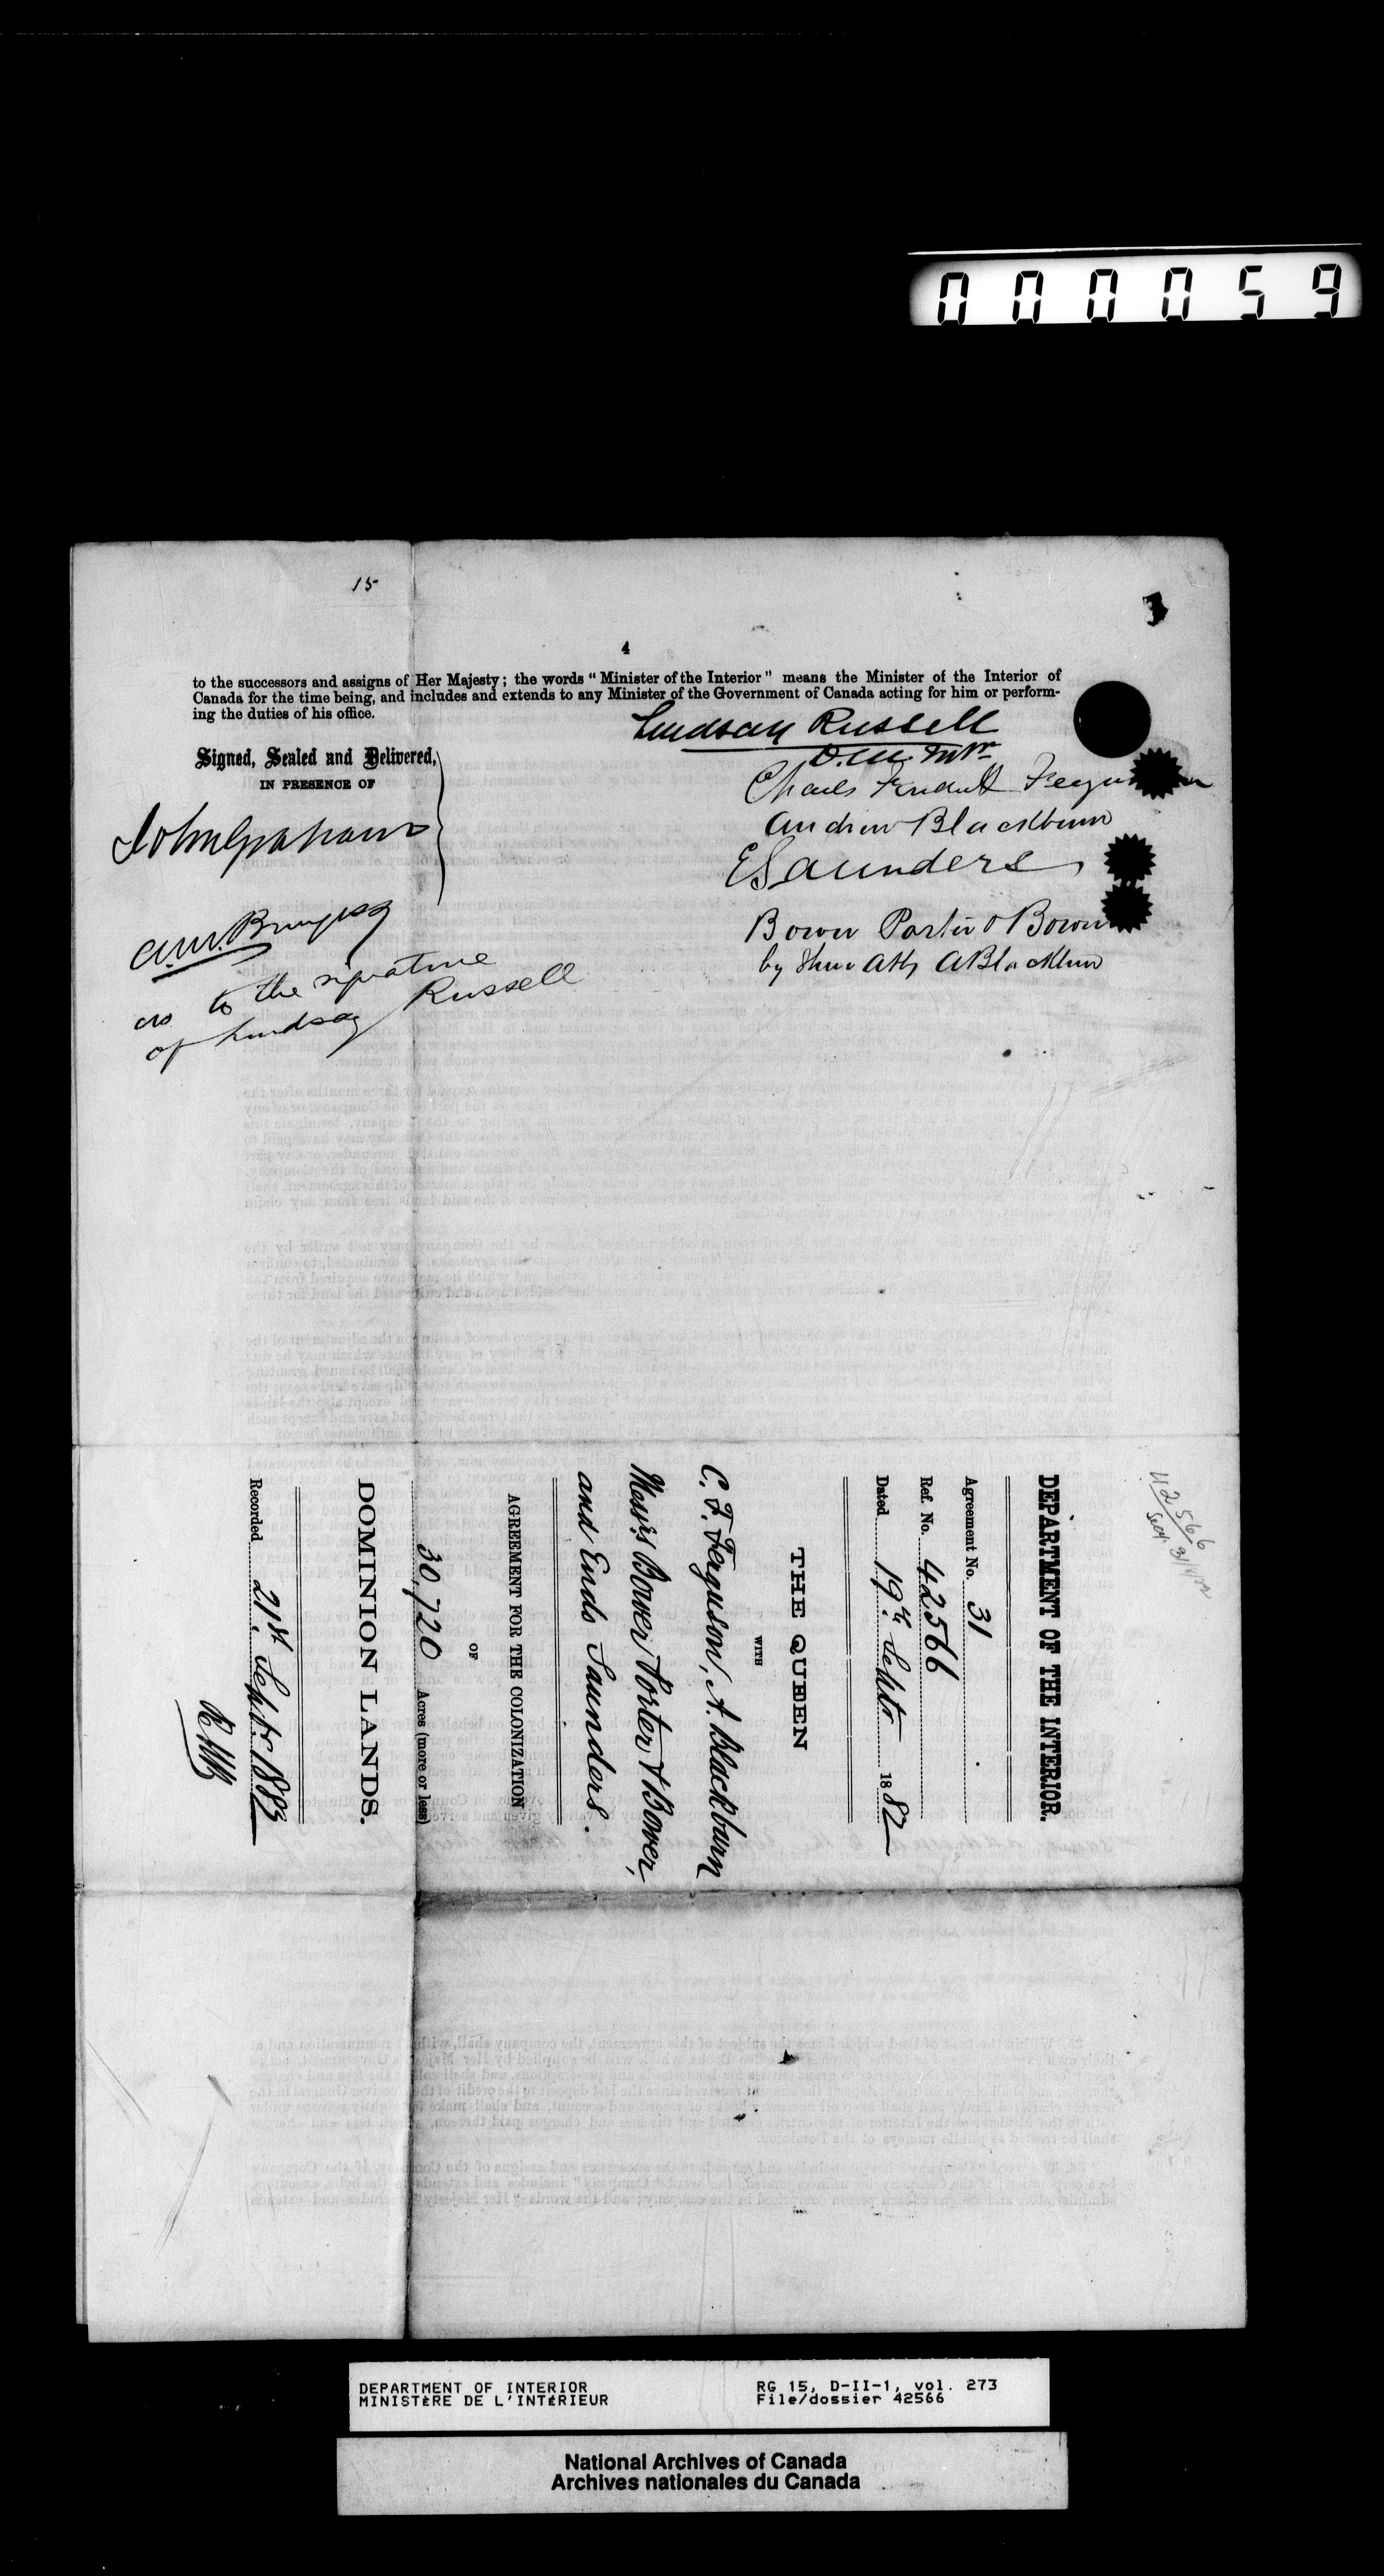 000059
15
3
4
to the successors and assigns of Her Majesty; the words "Minister of the Interior" means the Minister of the Interior of
Canada for the time being, and includes and extends to any Minister of the Government of Canada acting for him or perform-
ing the duties of his office.
Lindsay Russell
D.M. Intr
Signed, Sealed and Delivered,
IN PRESENCE OF
John Graham
A.M. Burgess
as to the signature
of Lindsay Russell
Charles Ferguson
Andrew Blackburn
E Saunders
Bower Porter & Bower
by their Atty A Blackburn
42566
DEPARTMENT OF THE INTERIOR.
Agreement No. 31
Ref. No. 42566
Dated 19th Septr 1882
THE QUEEN
WITH
C. F. Ferguson, A. Blackburn
Messrs Bower Porter & Bower,
and Enos Saunders.
AGREEMENT FOR THE COLONIZATION
OF
30,720 Acres (more or less)
DOMINION LANDS.
Recorded 21st Septr 1883
DEPARTMENT OF INTERIOR
MINISTÈRE DE L'INTÉRIEUR
RG 15, D-II-1, vol. 273
File/dossier 42566
National Archives of Canada
Archives nationales du Canada